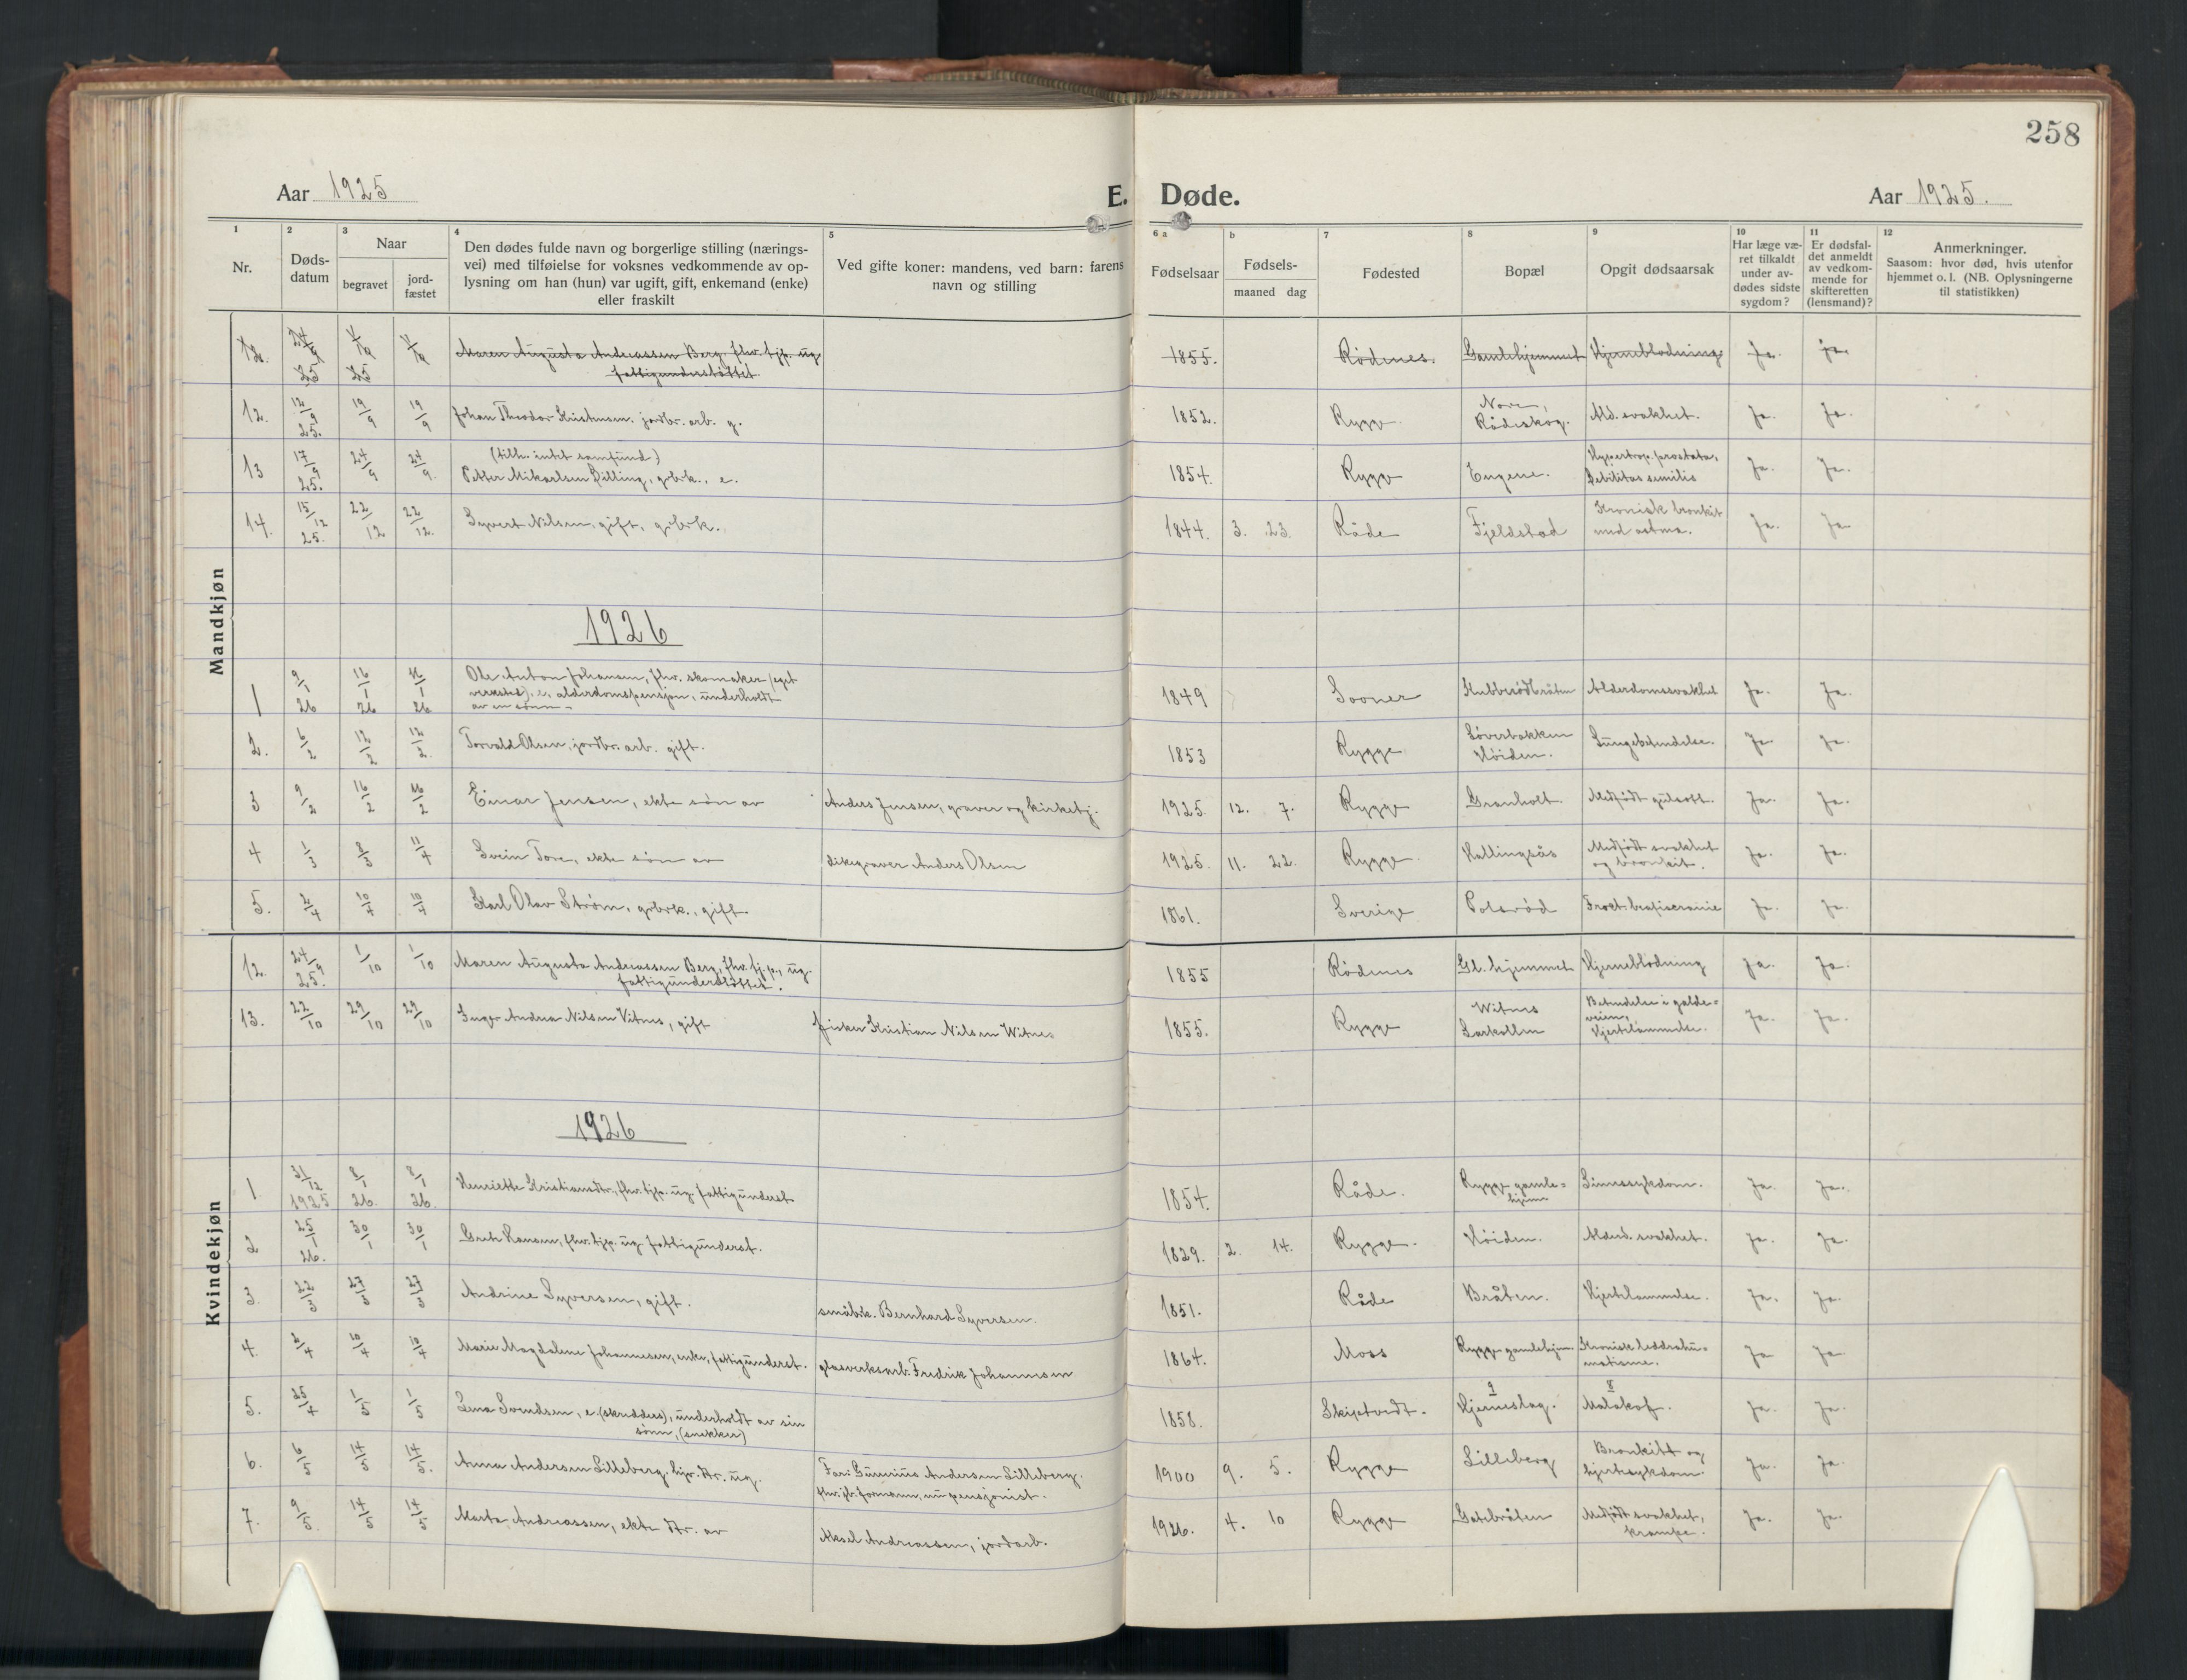 258
Aar 1925 E. Døde. Aar 1925.
1 2 3 4 5 6 a b 7 8 9 10 11 12
Nr.
Døds-
datum
Naar
begravet
jord-
fæstet
Den dødes fulde navn og borgerlige stilling (nærings-
vei) med tilføielse for voksnes vedkommende av op-
lysning om han (hun) var ugift, gift, enkemand (enke)
eller fraskilt
Ved gifte koner: mandens, ved barn: farens
navn og stilling
Fødselsaar
Fødsels-
maaned dag
Fødested
Bopæl
Opgit dødsaarsak
Har læge væ-
ret tilkaldt
under av-
dødes sidste
sygdom?
Er dødsfal-
det anmeldt
av vedkom-
mende for
skifteretten
(lensmand)?
Anmerkninger.
Saasom: hvor død, hvis utenfor
hjemmet o. l. (NB. Oplysningerne
til statistikken)
Mandkjøn
12. 24/9 25 1/10 25 1/10 Maren Augusta Andreassen Berg, fhv. tjp. ug. 1855. Rødenes. Gamlehjemmet Hjerneblødning Ja. Ja.
fattigunderstøttet
12. 12/9 25. 19/9 19/9 Johan Theodor Kristensen, jordbr. arb. g. 1852. Rygge Nore, Rådeskog. Ald. svakhet. Ja. Ja.
(tilh. intet samfund)
13 17/9 25. 24/9 24/9. Petter Mikarlsen Billing, grbrk., e. 1854. Rygge Eugene. Hypertrop. prostata, Debilitas senilis Ja. Ja.
14. 15/12 25. 22/12 22/12. Syvert Nilsen, gift, grbrk. 1844. 3. 23. Råde Fjeldstad Kronisk bronkit med astma. Ja. Ja
1926
1 9/1 26 16/1 26 16/1 26 Ole Anton Johansen, fhv. skomaker (eget
verksted), e, alderdomspensjon, underholdt
av en sønn. 1849 Sooner Kubberødbråten Alderdomssvakhet Ja. Ja.
2. 6/2 12/2 12/2. Torvald Olsen, jordbr. arb. gift. 1853 Rygge Løverbakken Høiden. Lungebetendelse. Ja. Ja.
3 9/2 16/2 16/2 Einar Jensen, ekte søn av Anders Jensen, graver og kirketj. 1925. 12. 7. Rygge Granholt. Medfødt gulsott. Ja. Ja.
4 1/3 8/3 11/4 Svein Tore, ekte søn av dikegraver Anders Olsen 1925. 11. 22. Rygge. Hallingsås Medfødt svakhet og bronkit. Ja. Ja.
5. 2/4 10/4 10/4 Karl Olav Strøm, grbrk., gift. 1861. Sverige Polsrød Ja. Ja.
Kvindekjøn
12. 24/9 25. 1/10 1/10 Maren Augusta Andreassen Berg, fhv. tj.p., ug. 1855 Rødenes Gl. hjemmet Hjerneblødning Ja. Ja.
fattigunderstøttet.
13. 22/10 29/10 29/10 Inger Andrea Nilsen Vitnes, gift fisker Kristian Nilsen Witnes 1855. Rygge Witnes Larkollen Betendelse i galde-
veiene, Hjertelammelse. Ja. Ja.
1926
1. 31/12 1925 8/1 26. 8/1 26. Henriette Kristiansdtr., fhv. tjp. ug. fattigunderst. 1854. Råde. Rygge gamle-
hjem Sinnssykdom. Ja. Ja.
2 25/1 26. 30/1 30/1 Grete Hansen, fhv. tjp. ug. fattigunderst. 1829. 2. 14. Rygge. Høiden. Alderd. svakhet. Ja. Ja.
3. 22/3 27/3 27/3 Andrine Syversen, gift. småbk. Bernhard Syversen. 1851. Råde Bråten. Hjertelammelse. Ja. Ja.
4. 2/4 10/4 10/4 Marie Magdalene Johannesen, enke, fattigunderst. glasverksarb. Fredrik Johannesen 1864. Moss Rygge gamlehjem. Kronisk leddrehu-
matisme. Ja Ja
5. 25/4 1/5 1/5 Lena Svendsen, e. (skredders), underholdt av sin
sønn, (snekker) 1858. Skiptvedt. 9 Hjerneslag. 8 Malakof. Ja. Ja.
6. 6/5 14/5 14/5. Anna Andersen Lilleberg, hjv. dtr. ug. Far: Gunerius Andersen Lilleberg,
fhv. jb. formann, nu pensjonist. 1900 9. 5. Rygge Lilleberg Bronkitt og
hjertesykdom. Ja. Ja.
7. 9/5. 14/5 14/5 Marta Andreassen, ekte dtr. av Aksel Andreassen, jordarb. 1926. 4. 10 Rygge Gatebråten Medfødt svakhet,
krampe. Ja. Ja.